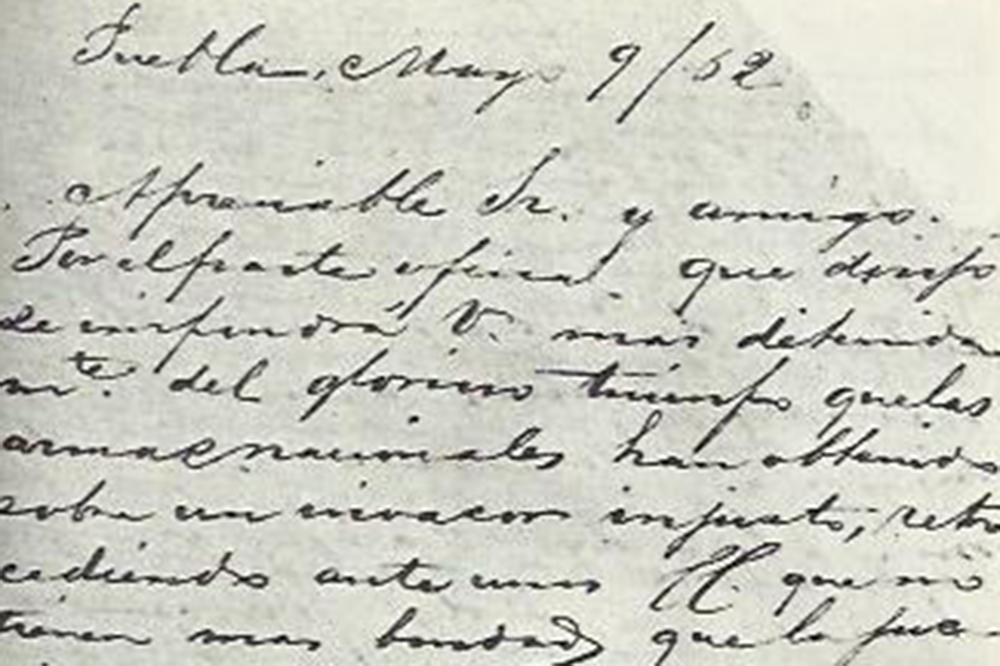 Puebla, Mayo 9/62.
Apreciable Sr. y amigo.
Por el parte oficial que
se impondrá V. mas detenida
mte. del glorioso triunfo que las
armas nacionales han obtenido
sobre un invasor injusto, retro
cediendo ante unos que no
tienen mas que la